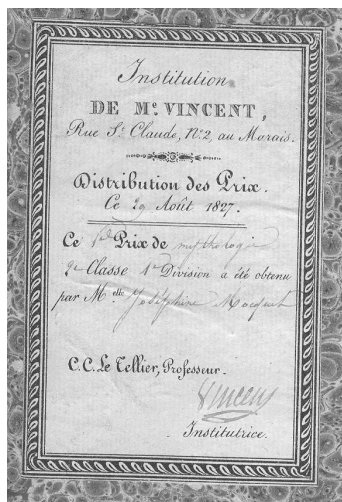 Institution
DE Me. VINCENT,
Rue St. Claude, No. 2, au Marais.
Distribution des Prix.
Ce 29 Août 1827.
Ce Prix de mythologie
2e Classe 1re Division a été obtenu
par Melle Joséphine
C.C. Le Tellier, Professeur.
Vincent
Institutrice.